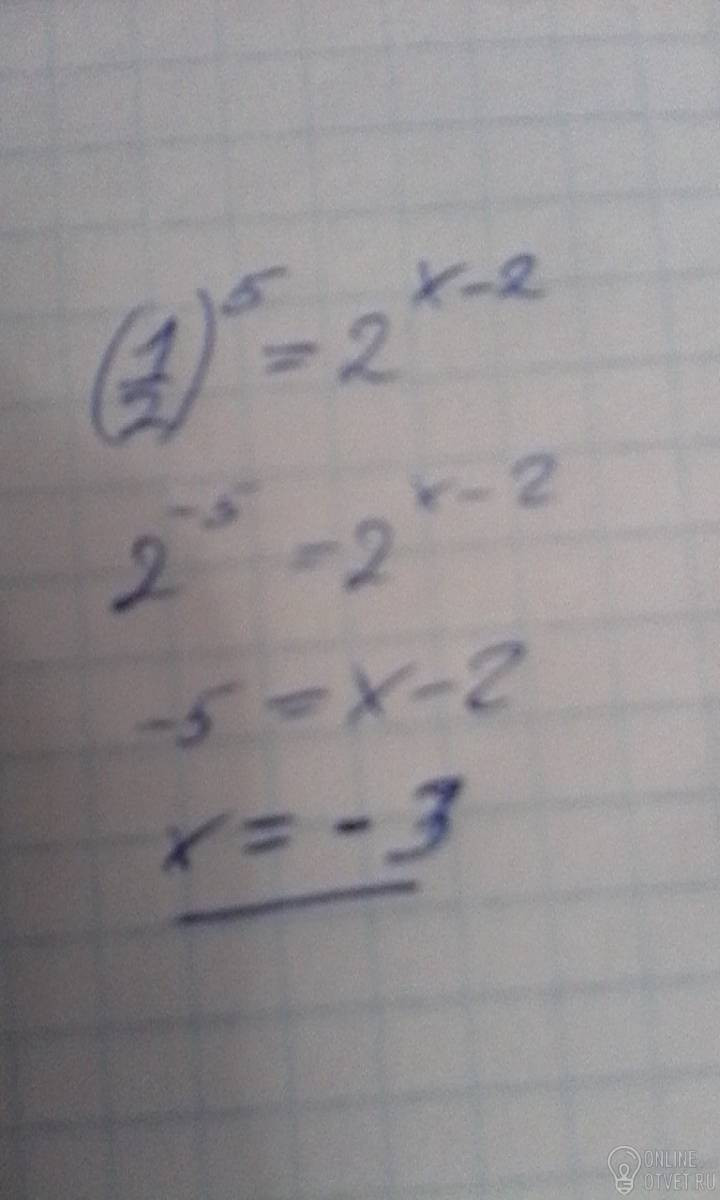 (1/2)^5 = 2^(x-2)
2^-5 = 2^(x-2)
-5 = x-2
x = -3
ONLINE
OTVET.RU